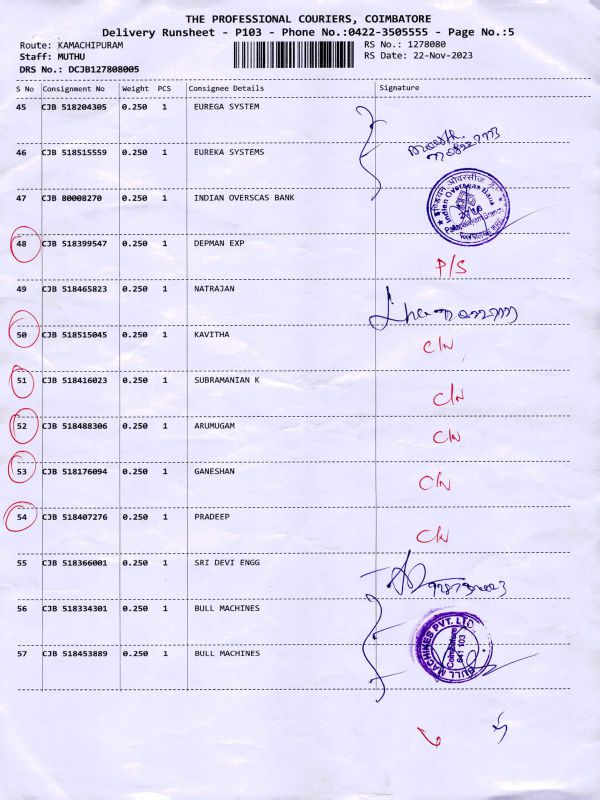 THE PROFESSIONAL COURIERS, COIMBATORE
Delivery Runsheet - P103 - Phone No.:0422-3505555 - Page No.:5
Route: KAMACHIPURAM RS No.: 1278080
Staff: MUTHU RS Date: 22-Nov-2023
DRS No.: DCJB127808005
S No Consignment No Weight PCS Consignee Details Signature
45 CJB 518204305 0.250 1 EUREGA SYSTEM
46 CJB 518515559 0.250 1 EUREKA SYSTEMS
47 CJB 80008270 0.250 1 INDIAN OVERSCAS BANK
Indian Overseas Bank
48 CJB 518399547 0.250 1 DEPMAN EXP
P/S
49 CJB 518465823 0.250 1 NATRAJAN
50 CJB 518515045 0.250 1 KAVITHA
C/N
51 CJB 518416023 0.250 1 SUBRAMANIAN K
C/N
52 CJB 518488306 0.250 1 ARUMUGAM
C/N
53 CJB 518176094 0.250 1 GANESHAN
C/N
54 CJB 518407276 0.250 1 PRADEEP
C/N
55 CJB 518366001 0.250 1 SRI DEVI ENGG
56 CJB 518334301 0.250 1 BULL MACHINES
BULL MACHINES PVT. LTD
Coimbatore
641 103
57 CJB 518453889 0.250 1 BULL MACHINES